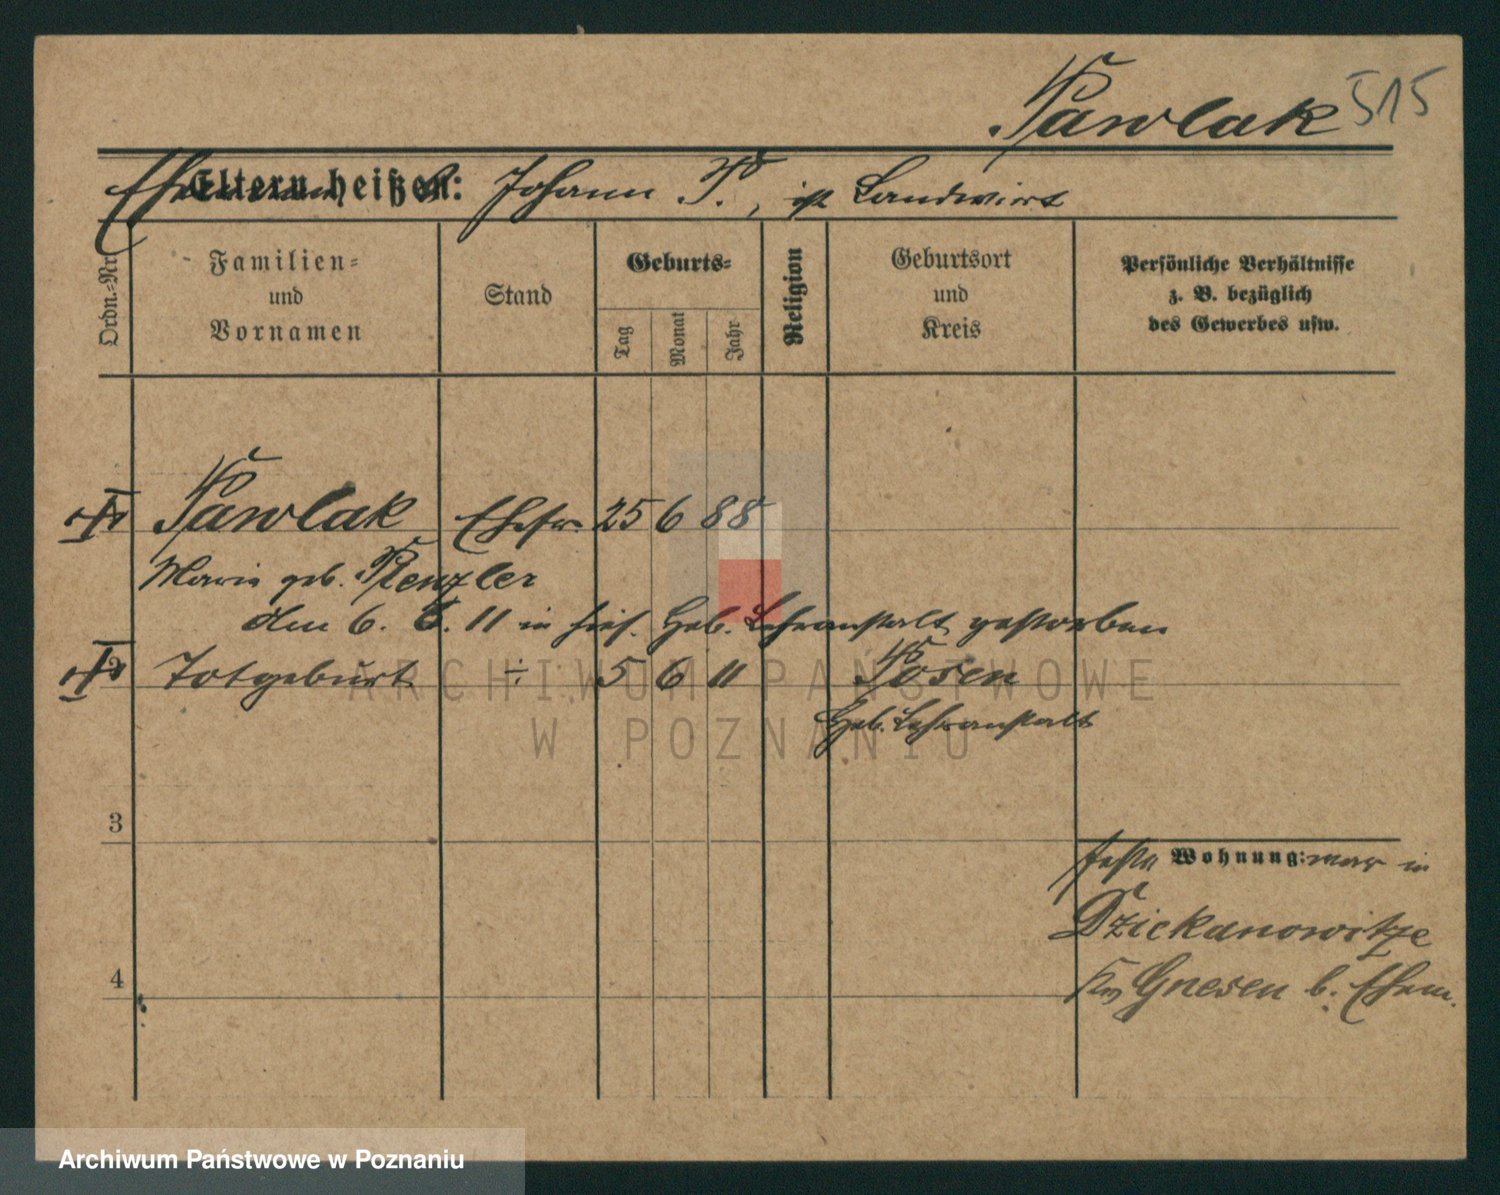 Pawlak 515
Eltern heißen:
Ehemann Johann P., ist Landwirt
Ordn.-Nr.
Familien- und Vornamen
Stand
Geburts-
Tag
Monat
Jahr
Religion
Geburtsort und Kreis
Persönliche Verhältnisse z. B. bezüglich des Gewerbes usw.
1 Pawlak Ehefr. 25 6 88
Marie geb.
den 6. 6. 11 in hies. Heb. Lehranstalt gestorben
2 Totgeburt ÷ 5 6 11 Posen
Heb. Lehranstalt
3
feste Wohnung: war in
Dziekanowitze
4
Kr. Gnesen b. Ehem.
ARCHIWUM PAŃSTWOWE
W POZNANIU
Archiwum Państwowe w Poznaniu